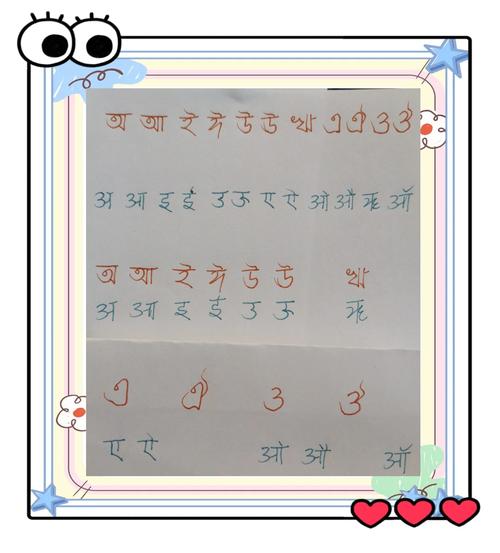 অ আ ই ঈ উ ঊ ঋ এ ঐ ও ঔ
अ आ इ ई उ ऊ ए ऐ ओ औ ऋ ऑ
অ আ ই ঈ উ ঊ ঋ
अ आ इ ई उ ऊ ऋ
এ ঐ ও ঔ
ए ऐ ओ औ ऑ